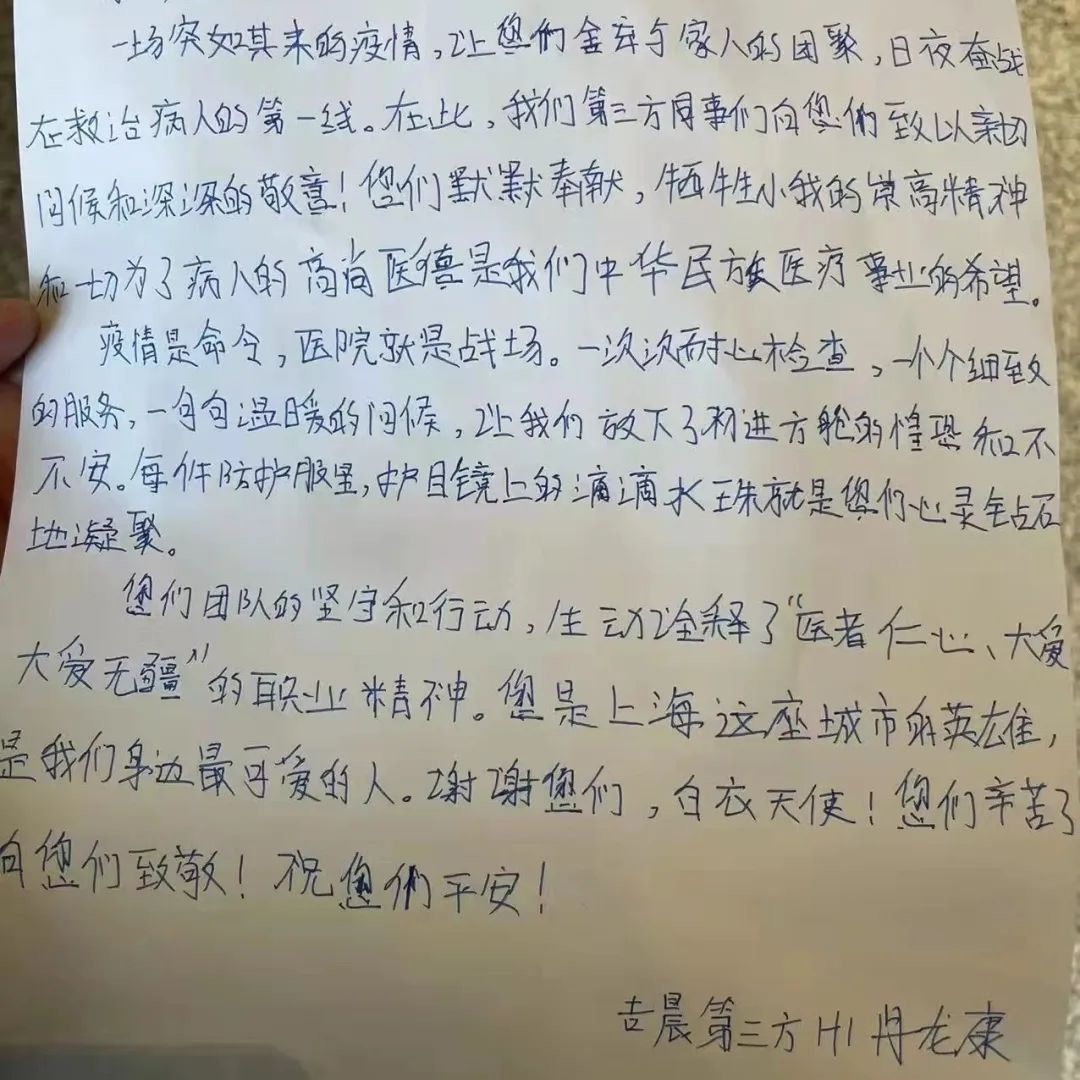 一场突如其来的疫情，让您们舍弃与家人的团聚，日夜奋战
在救治病人的第一线。在此，我们第三方同事们向您們致以亲切
问候和深深的敬意！您们默默奉献，牺牲小我的崇高精神
和一切为了病人的高尚医德是我们中华民族医疗事业的希望。
疫情是命令，医院就是战场。一次次耐心检查，一个个细致
的服务，一句句温暖的问候，让我们放下了初进方舱的惶恐和不
不安。每件防护服里，护目镜上的滴滴水珠就是您们心灵钻石
地凝聚。
您们团队的坚守和行动，生动诠释了“医者仁心、大爱
大爱无疆”的职业精神。您是上海这座城市的英雄，
是我们身边最可爱的人。谢谢您们，白衣天使！您们辛苦了
向您们致敬！祝您們平安！
吉晨第三方H1 龙康